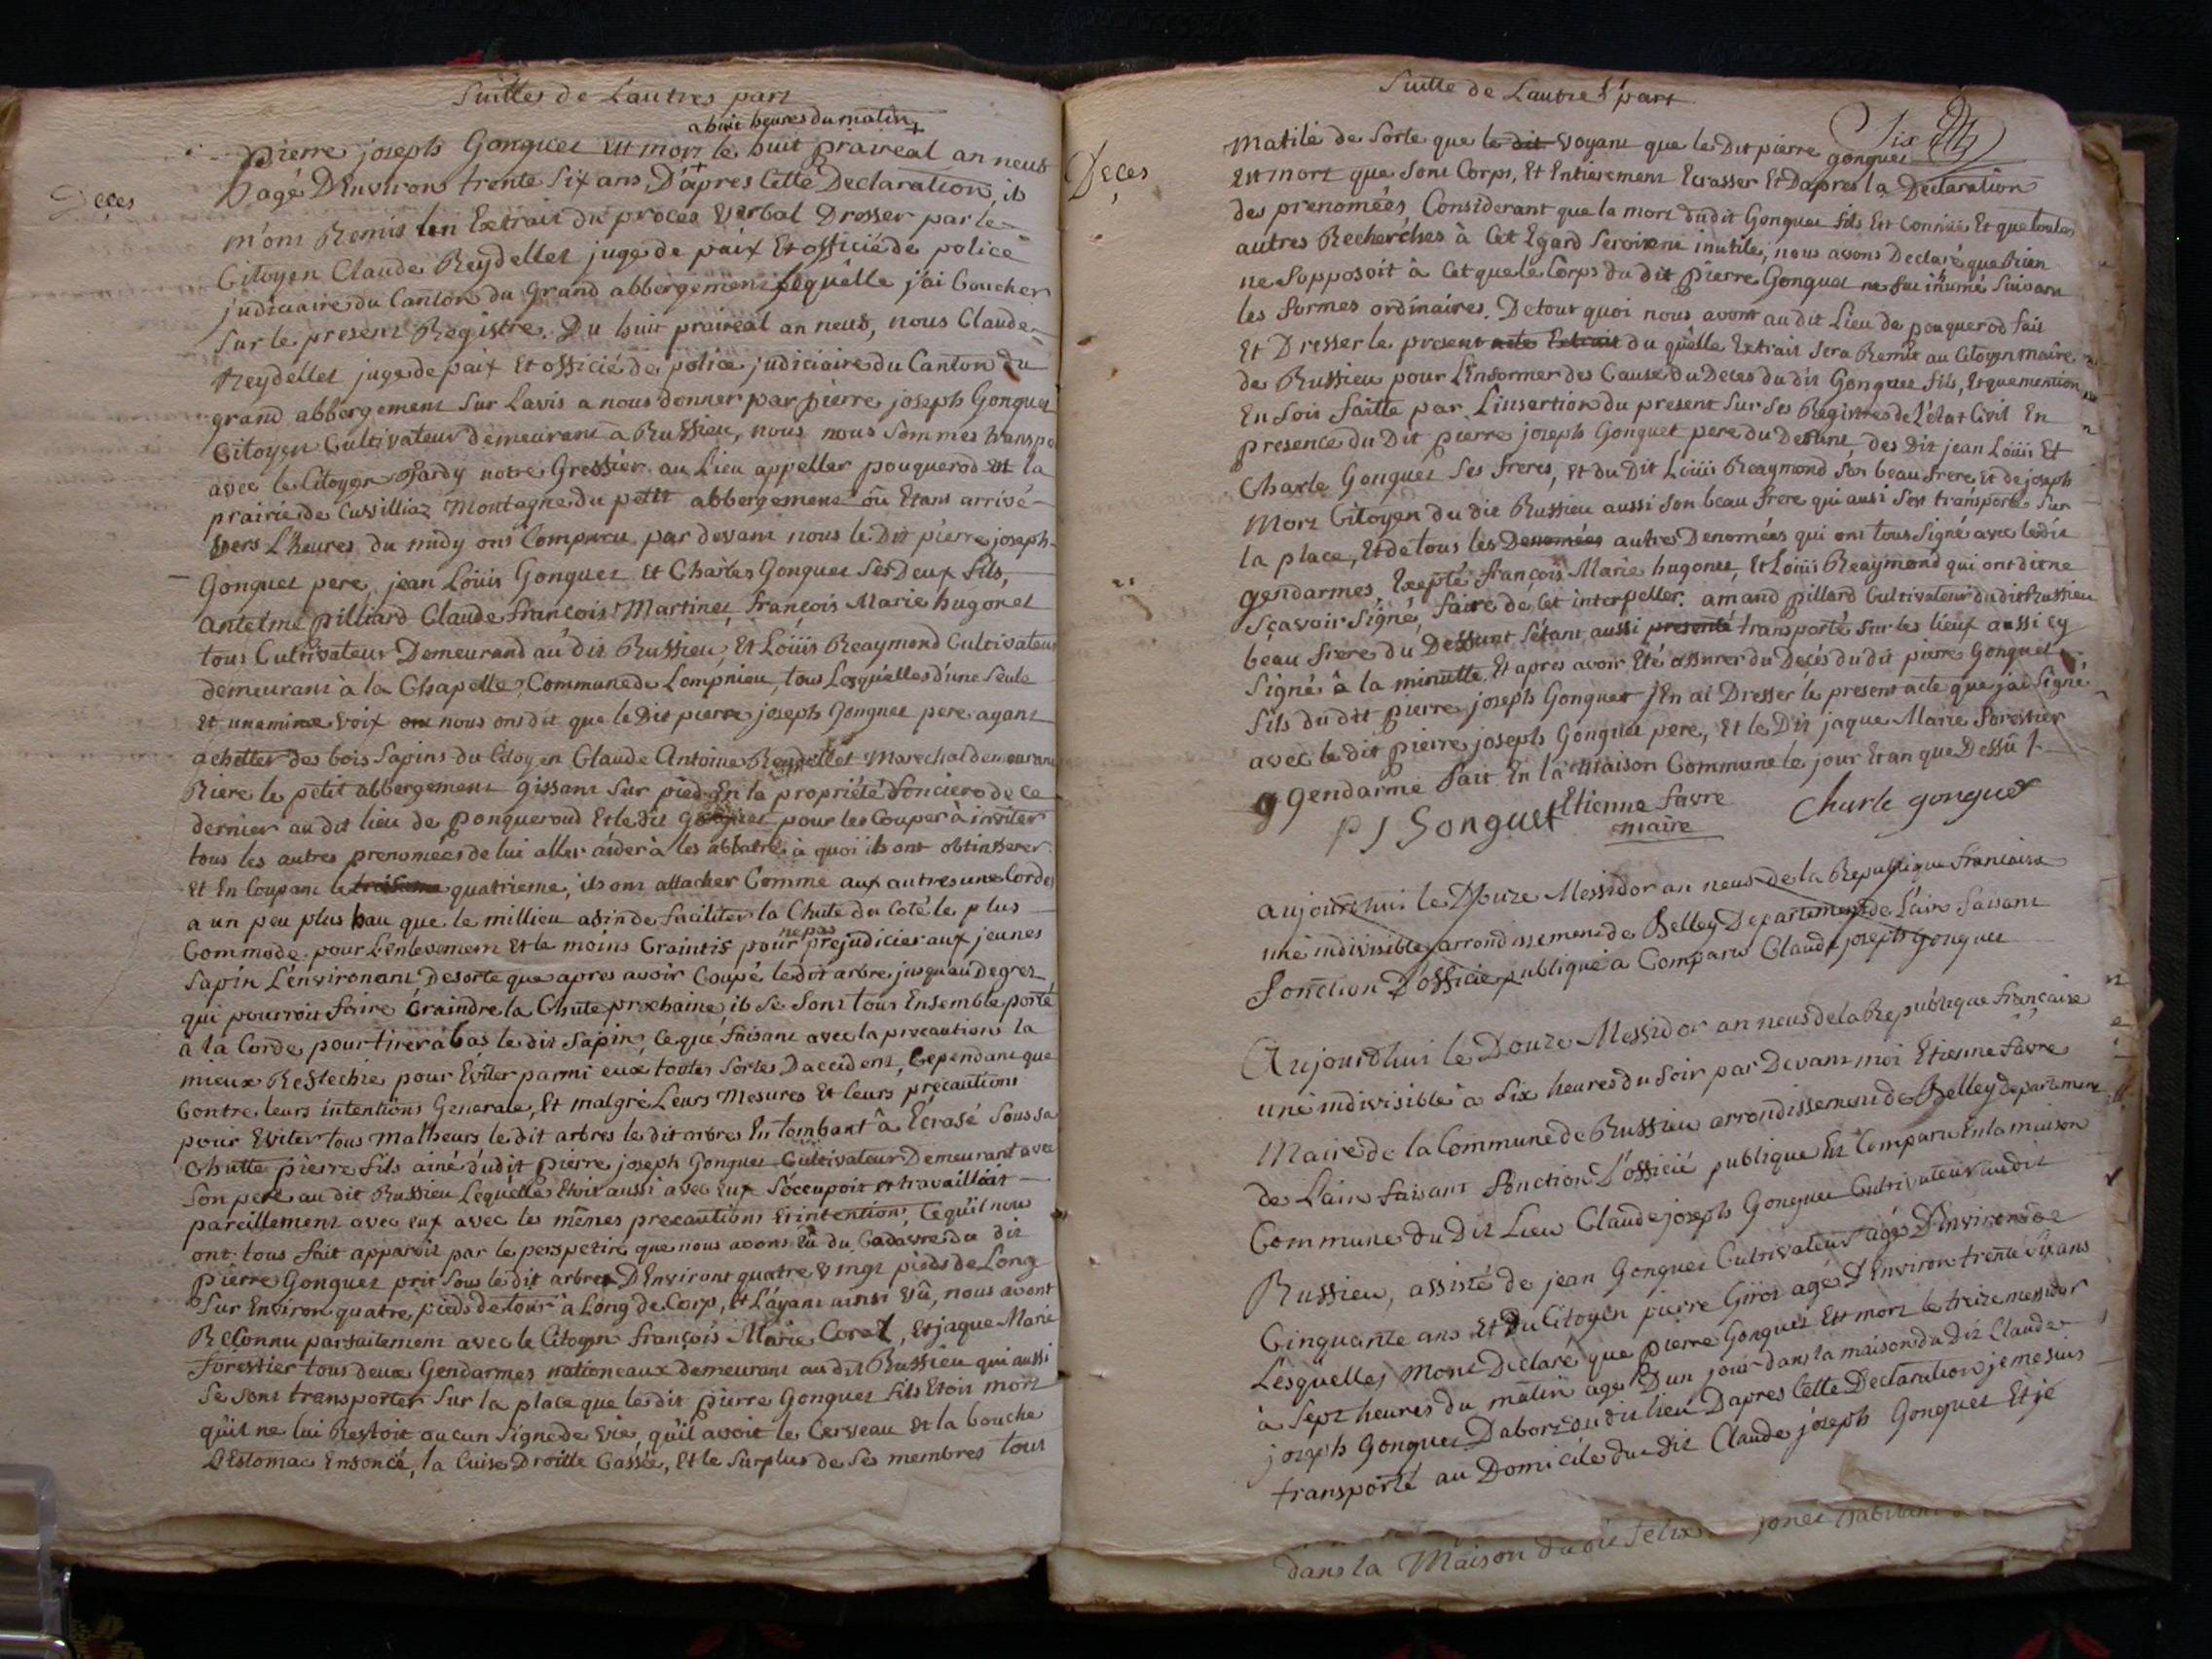 Suittes de Lautres part
a huit heures du matin +
Pierre joseph Gonguet Est mort le huit praireal an neuf
Deçes
agé DEnviron trente Six ans, D'apres Cette Declaration, ils
m'ont Remis un Extrait du proces Verbal Dresser par le
Citoyen Claude Reydellet juge de paix Et officié de police
judiciaire du Canton du Grand abbergement lequ'elle j'ai Coucher
Sur le present Registre. Du huit praireal an neuf, nous Claude
Reydellet juge de paix Et officié de police judiciaire du Canton du
grand abbergement Sur Lavis a nous donner par pierre joseph Gonguet
Citoyen Cultivateur demeurant a Russieu, nous nous Sommes transpo
avec le Citoyen Tardy notre Greffier au Lieu appeller pouquerod Et la
prairie de Cuvilliaz Montagne du petit abbergement ou Etans arrivé
vers L'heures du midy ont Comparu par devant nous le Dit pierre joseph
Gonguet pere, jean Loüis Gonguet Et Charles Gonguet Ses Deux fils,
antelme pilliard Claude françois Martinet, françois Marie hugonet
tous Cultivateur Demeurand au dit Russieu, Et Loüis Reaymond Cultivateur
demeurant à la Chapelle, Commune de Lompnieu, tous Lesqu'elles d'une Seule
Et unamine voix ont nous ont dit que le Dit pierre joseph Gonguet pere ayant
achetter des bois Sapins du Citoyen Claude Antoine Reydellet Marechal demeurant
Riere le petit abbergement gissant Sur pied En la propriété Fonciero de Ce
dernier au dit lieu de Ponqueroud Et le dit Gonguet pour les Couper à inviter
tous les autres prenomées de lui aller aider à les abbatre à quoi ils ont obtinterer
Et En Coupant le troisieme quatrieme, ils ont attacher Comme aux autres une Corde
a un peu plus hau que le millieu afin de faciliter la Chute du Coté le plus
Commode pour L'enlevement Et le moins Craintif pour ne pas prejudicier aux jeunes
Sapin L'environant Desorte que apres avoir Coupé le dit arbre jusqu'au Degrez
qui pourroit faire Craindre la Chute prochaine, ils Se Sont tous Ensemble porté
à la Corde pour tirer à bas le dit Sapin, Ce que faisant avec la precautions la
mieux Reflechie pour Eviter parmi eux toutes Sortes Daccident, Cependant que
Contre leurs intentions Generale, Et malgré Leurs Mesures Et leurs precautions
pour Eviter tous Malheurs le dit arbres le dit arbres En tombant à Ecrasé Sous sa
Chutte pierre fils ainé du dit pierre joseph Gonguet Cultivateur Demeurant avec
Son pere au dit Russieu Lequ'elle Etoit aussi avec Eux S'occupoit Et travailloit
pareillement avec Eux avec les mêmes precautions Et intentions, Ce qu'il nous
ont tous fait apparoir par le perspetire que nous avons Eû du Cadavre du dit
Pierre Gonguet prit Sous le dit arbre DEnviront quatre vingt pieds de Long
Sur Environ quatre pieds de tour à Long de Corp, Et L'ayant ainsi vû, nous avont
Reconnu parfaitement avec le Citoyen françois Marie Coret, Et jaque Marie
Forestier tous deux Gendarmes nationeaux demeurant au dit Russieu qui aussi
Se Sont transporter Sur la place que le dit pierre Gonguet fils Etoit mort
qu'il ne lui Restoit aucun Signe de vie, qu'il avoit le Cerveau Et la bouche
DEstomac Enfoncé, la Cuise Droitte Cassée, Et le Surplus de Ses membres tous
Suitte de Lautre part
Six
Deçes
matilé de Sorte que le dit voyant que le Dit pierre gonguet
Est mort que Sont Corps, Et Entierement Ecrasser Et Dapres la Declaration
des prenomées, Considerant que la mort du dit Gonguet fils Est Connüe Et que toutes
autres Recherches à Cet Egard Seroient inutile, nous avons Declaré que Rien
ne Sopposoit à Cet que le Corps du dit Pierre Gonguet ne fut inhumé Suivant
les formes ordinaires. De tout quoi nous avont au dit Lieu de pouquerod fait
Et Dresser le present acte Extrait du qu'elle Extrait Sera Remis au Citoyen maire
de Russieu pour L'Enformer des Cause du Deces du dit Gonguet fils, Et que mention
En Soit faitte par L'insertion du present Sur Ses Registres de L'état Civil En
presence du Dit pierre joseph Gonguet pere du Defunt des Dit jean Loüis Et
Charle Gonguet Ses freres, Et du Dit Loüis Reaymond Son beau frere Et de joseph
Mort Citoyen du dit Russieu aussi Son beau frere qui ausi Sest transporté Sur
la place, Et de tous les Denomées autres Denomées qui ont tous Signé avec le dit
gendarmes, Exepté françois Marie hugonet, Et Loüis Reaymond qui ont dit ne
Sçavoir Signé, faire de Cet interpeller. amand pillard Cultivateur du dit Russieu
beau frere du Deffunt S'étant aussi presenté transporté Sur les lieux aussi Cy
Signé à la minutte. Et apres avoir Eté assurer du Decés du dit pierre Gonguet
fils du dit pierre joseph Gonguet jEn ai Dresser le present acte que jai Signé
avec le dit Pierre joseph Gonguet pere, Et le Dit jaque Marie forestier
g Gendarme fait En la Maison Commune le jour Et an que Dessû
P J Gonguet Etienne favre Charle gonguet
maire
aujourdhui le Douze Messidor an neuf de la Republique francaise
une indivisible arrondissement de Belley Departement de L'ain faisant
fonction D'officié publique a Comparu Claude joseph Gonguet
Aujourd'hui le Douze Messidor an neuf de la Republique française
une indivisible à Six heures du Soir par Devant moi Etienne favre
Maire de la Commune de Russieu arrondissement de Belley departement
de Lain faisant fonction L'officié publique Est Comparu En la maison
Commune du Dit Lieu Claude joseph Gonguet Cultivateur au dit
Russieu, assisté de jean Gonguet Cultivateur agé DEnviron
Cinquante ans Et Du Citoyen pierre Girot agé DEnviron trente Six ans
Lesqu'elles mont Declaré que Pierre Gonguet Est mort le treize messidor
à Sept heures du matin agé D'un jour dans la maison du dit Claude
joseph Gonguet D'abort du dit lieu Dapres Cette Declaration je me Suis
transporté au Domicile du dit Claude joseph Gonguet Et je
dans la Maison du dit felix